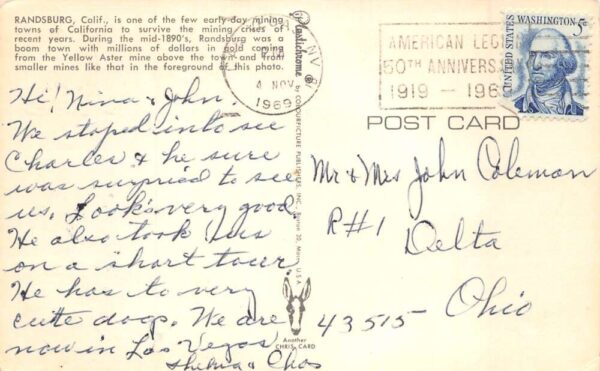 RANDSBURG, Calif., is one of the few early-day mining
towns of California to survive the mining crises of
recent years. During the mid-1890's, Randsburg was a
boom town with millions of dollars in gold coming
from the Yellow Aster mine above the town and from
smaller mines like that in the foreground of this photo.
Hi! Nina & John.
We stoped into see
Charles & he sure
was surpried to see
us. Looks very good.
He also took us
on a short tour.
He has to very
cute doop. We are
now in Las Vegas
Chas
Plastichrome
by COLOURPICTURE PUBLISHERS, INC., Boston 30, Mass., U.S.A.
Another
CHRIS CARD
NV
PM
4 NOV
1969
AMERICAN LEGI
50TH ANNIVERS
1919 - 196
WASHINGTON 5c
UNITED STATES
POST CARD
Mr & Mrs John Coleman
R#1
Delta
Ohio
43515